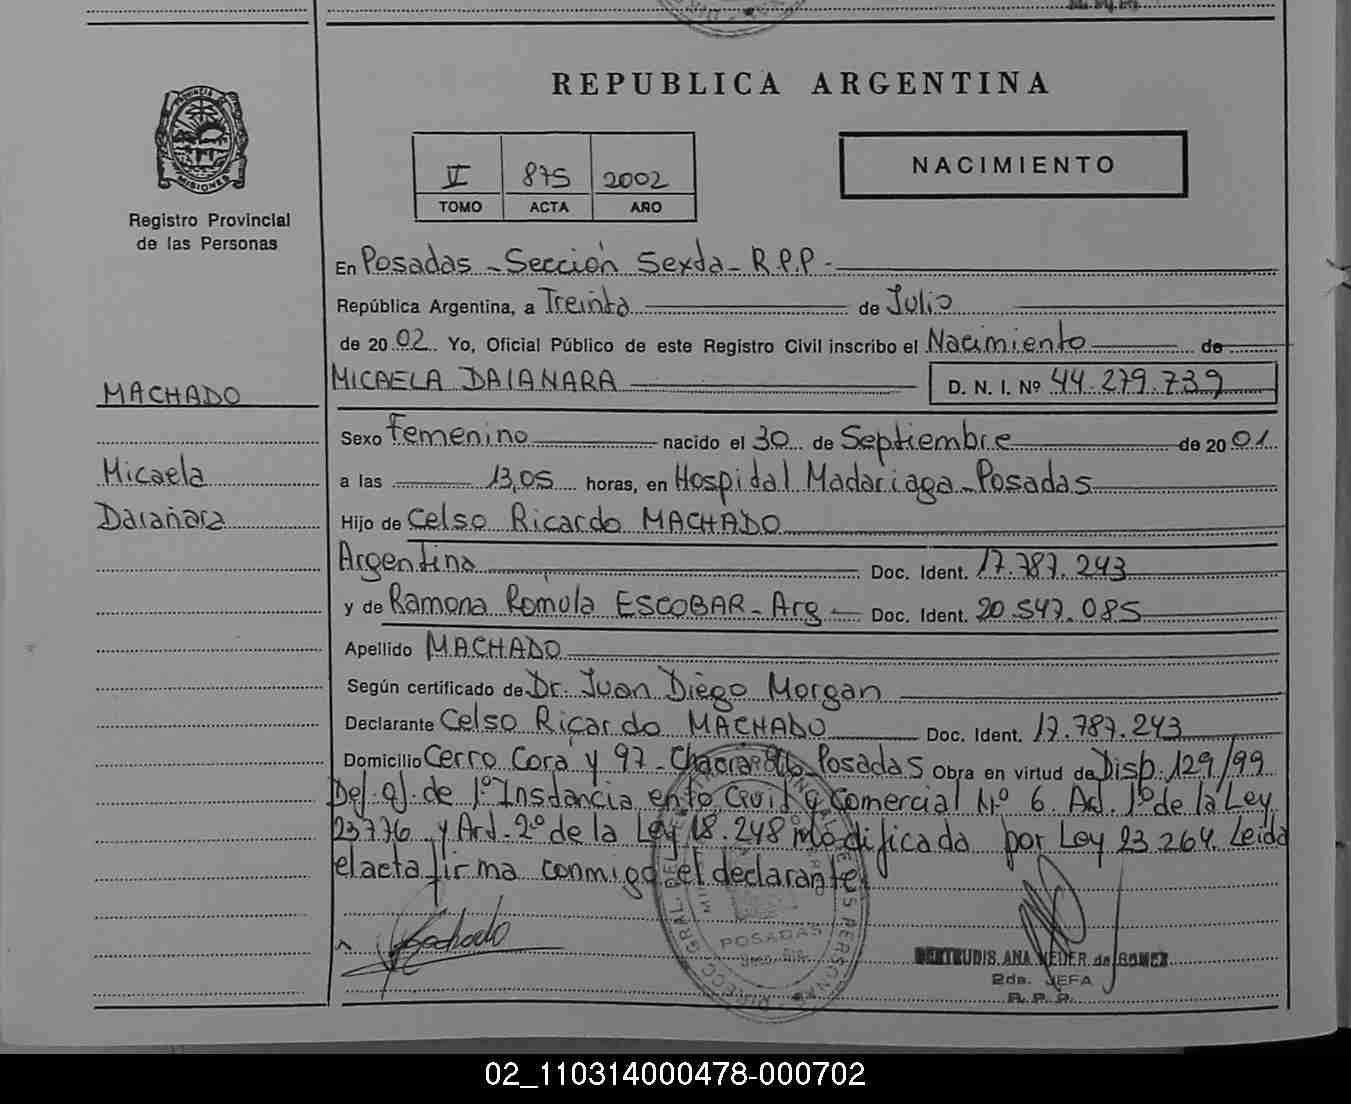 REPUBLICA ARGENTINA
PROVINCIA DE
MISIONES
Registro Provincial
de las Personas
V 875 2002
TOMO ACTA AÑO
NACIMIENTO
En Posadas - Sección Sexta - R.P.P -
República Argentina, a Treinta de Julio
de 2002 Yo, Oficial Público de este Registro Civil inscribo el Nacimiento de
MACHADO
Micaela
Daiañara
MICAELA DAIANARA D. N. I. Nº 44.279.739
Sexo Femenino nacido el 30 de Septiembre de 2001
a las 13,05 horas, en Hospital Madariaga - Posadas
Hijo de Celso Ricardo MACHADO
Argentina Doc. Ident. 17.787.243
y de Ramona Romula ESCOBAR - Arg - Doc. Ident. 20.547.085
Apellido MACHADO
Según certificado de Dr. Juan Diego Morgan
Declarante Celso Ricardo MACHADO Doc. Ident. 17.787.243
Domicilio Cerro Corá y 97 - Chacra Posadas Obra en virtud de Disp. 129/99
Def. of. de 1º Instancia en lo Civil y Comercial Nº 6. Art. 1º de la Ley
23776 y Art. 2º de la Ley 18.248 modificada por Ley 23.264. Leida
el acta firma conmigo el declarante.
Machado
POSADAS
GERTRUDIS ANA NEDER de GOMEZ
2da. JEFA
R. P. P.
02_110314000478-000702